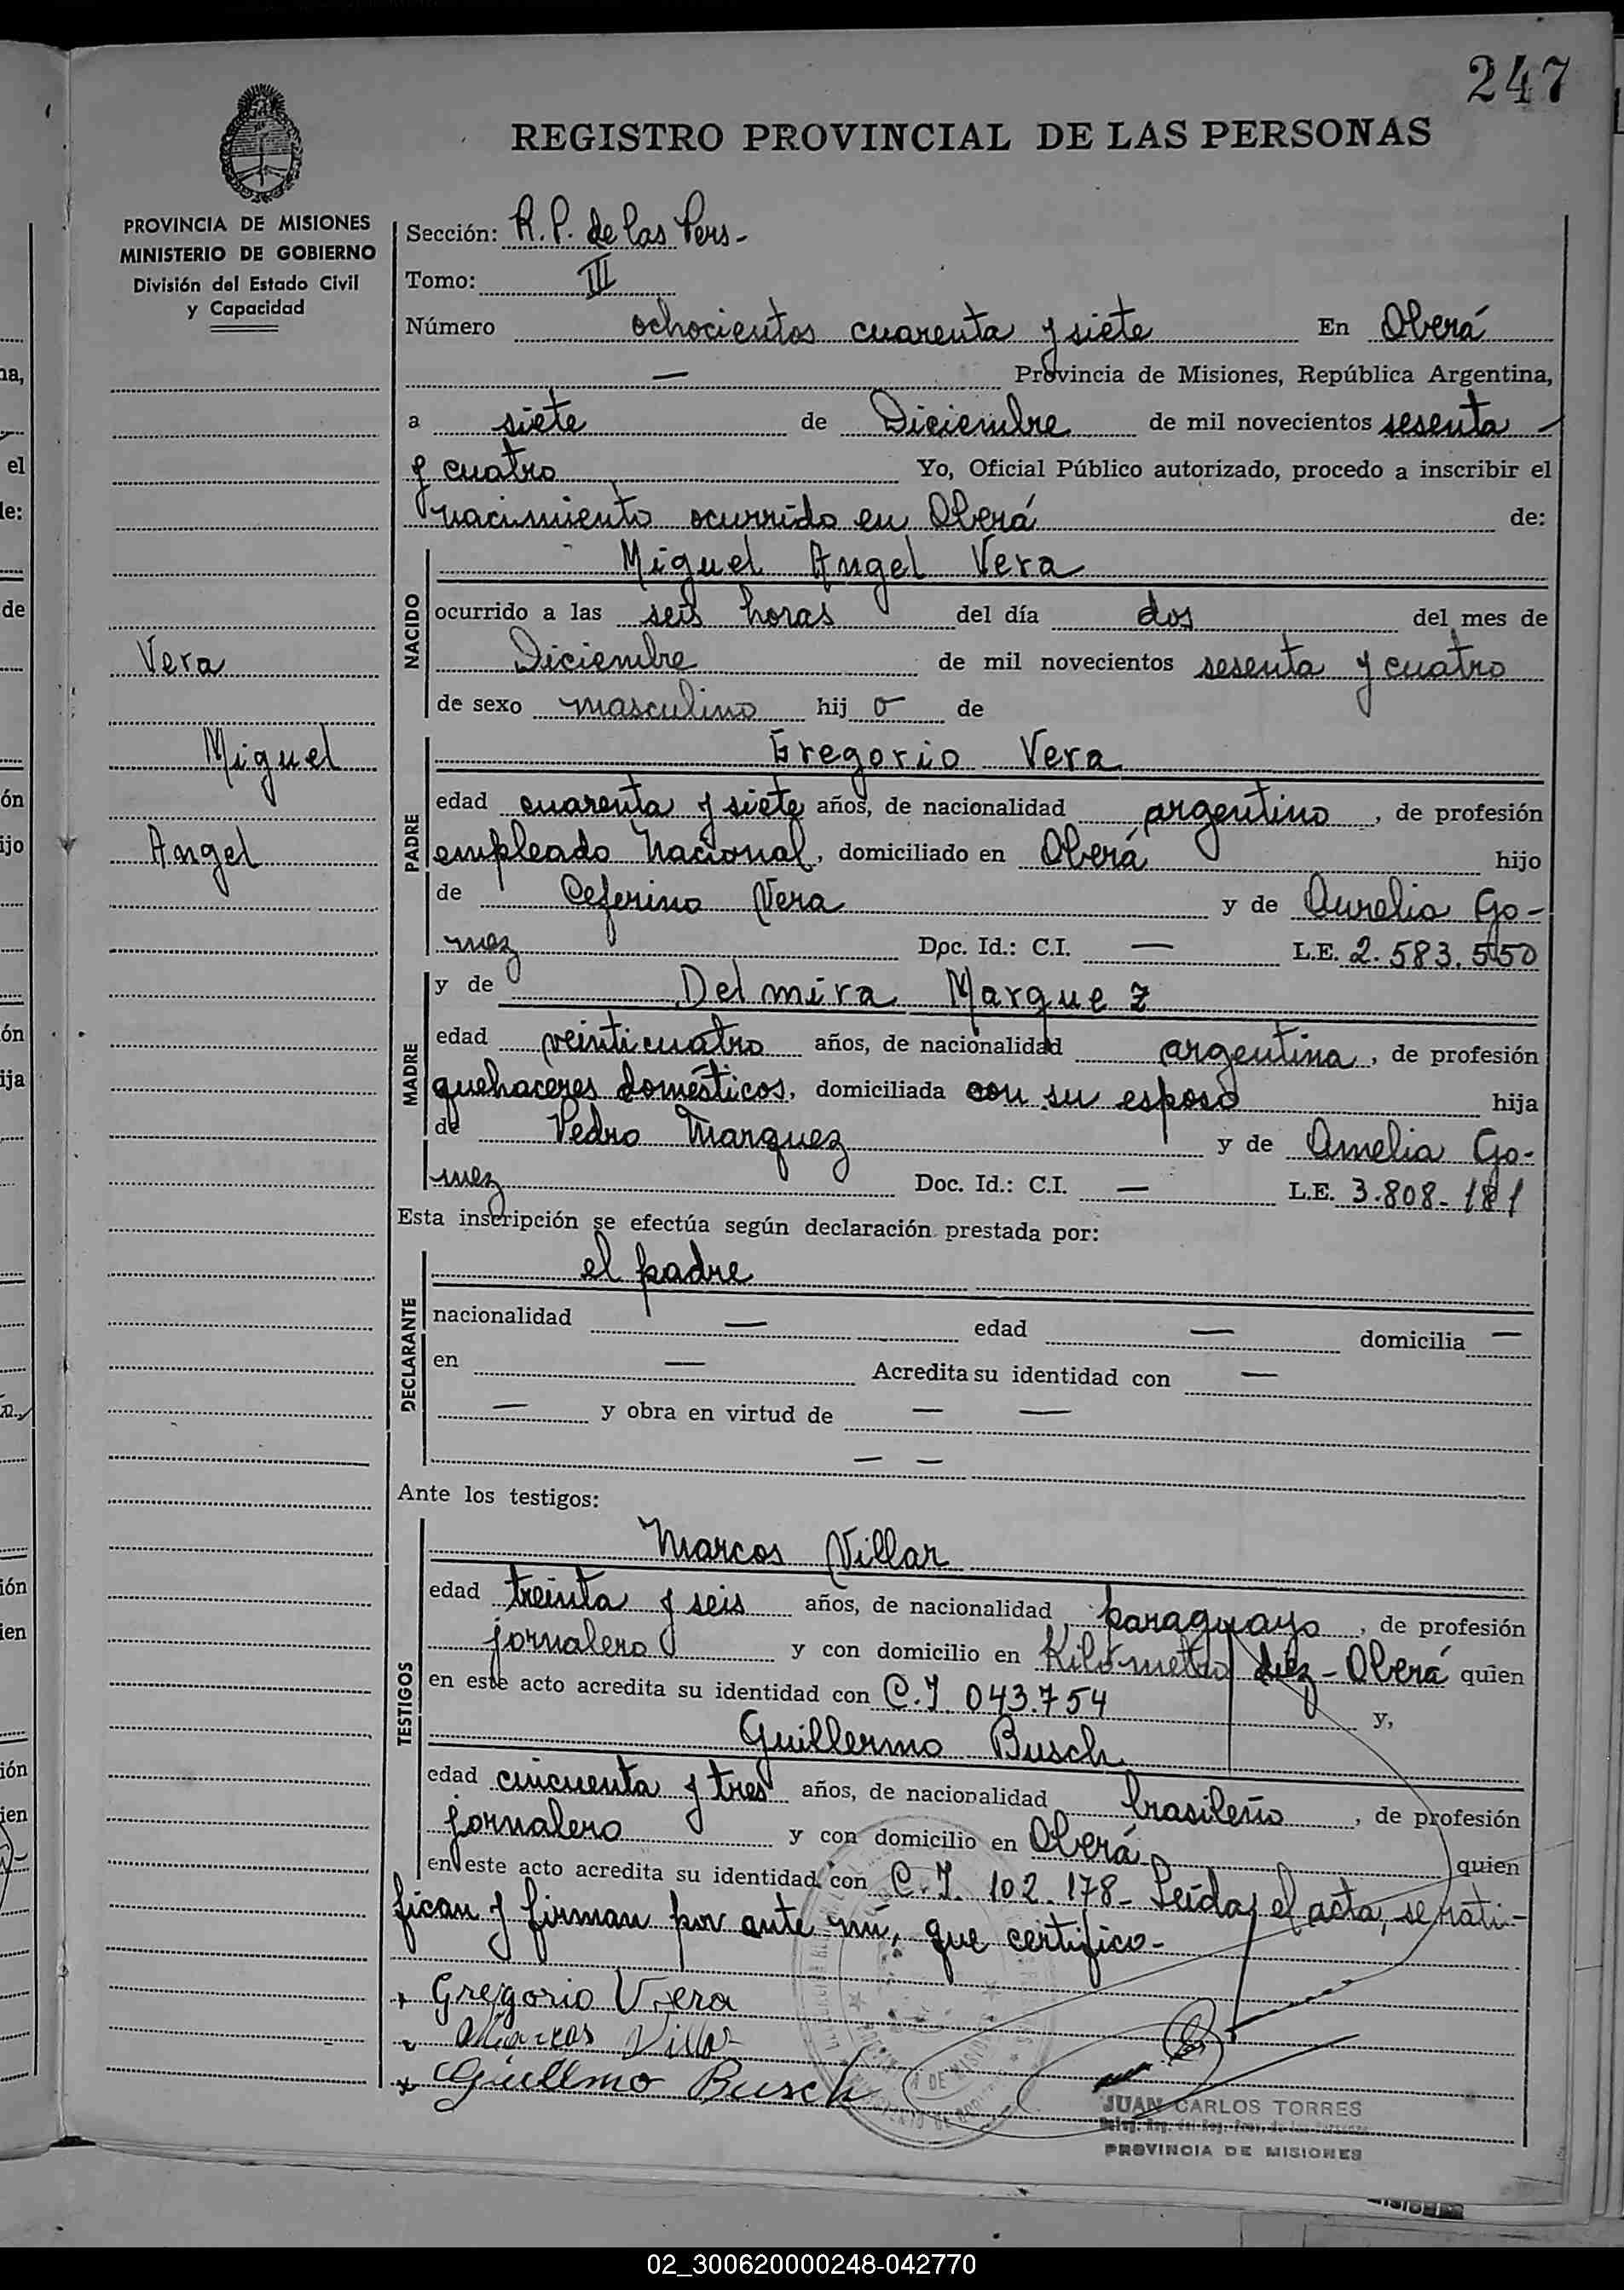 247
REGISTRO PROVINCIAL DE LAS PERSONAS
PROVINCIA DE MISIONES
MINISTERIO DE GOBIERNO
División del Estado Civil
y Capacidad
Vera
Miguel
Angel
Sección: R. P. de las Pers-
Tomo: III
Número ochocientos cuarenta y siete En Oberá
— Provincia de Misiones, República Argentina,
a siete de Diciembre de mil novecientos sesenta
y cuatro Yo, Oficial Público autorizado, procedo a inscribir el
nacimiento ocurrido en Oberá de:
NACIDO
Miguel Angel Vera
ocurrido a las seis horas del día dos del mes de
Diciembre de mil novecientos sesenta y cuatro
de sexo masculino hijo de
PADRE
Gregorio Vera
edad cuarenta y siete años, de nacionalidad argentino, de profesión
empleado Nacional, domiciliado en Oberá hijo
de Ceferino Vera y de Aurelia Go-
mez Doc. Id.: C.I. — L.E. 2.583.550
MADRE
y de Delmira Marquez
edad veinticuatro años, de nacionalidad argentina, de profesión
quehaceres domésticos, domiciliada con su esposo hija
de Pedro Marquez y de Amelia Go-
mez Doc. Id.: C.I. — L.E. 3.808-181
Esta inscripción se efectúa según declaración prestada por:
DECLARANTE
el padre
nacionalidad — edad — domicilia —
en — Acredita su identidad con —
— y obra en virtud de — —
— —
Ante los testigos:
TESTIGOS
Marcos Villar
edad treinta y seis años, de nacionalidad paraguayo, de profesión
jornalero y con domicilio en Kilómetro diez - Oberá quien
en este acto acredita su identidad con C.I. 043.754 y,
Guillermo Busch
edad cincuenta y tres años, de nacionalidad brasileño, de profesión
jornalero y con domicilio en Oberá quien
en este acto acredita su identidad con C.I. 102.178- Leída el acta, se rati-
fican y firman por ante mí, que certifico-
Gregorio Vera
Marcos Villar
Guillmo Busch
JUAN CARLOS TORRES
PROVINCIA DE MISIONES
02_300620000248-042770